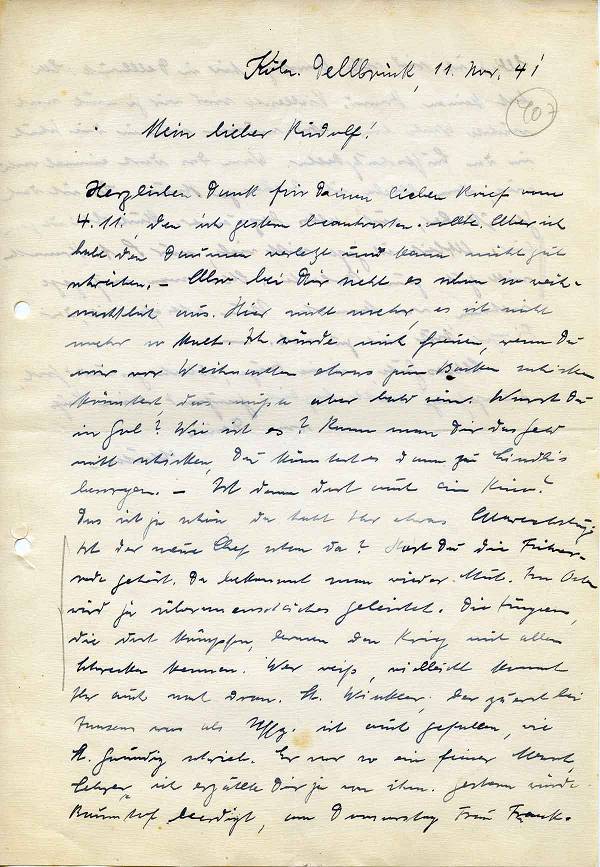 Köln. Dellbrück, 11. Nov. 41
407
Mein lieber Rudolf!
Herzlichen Dank für Deinen lieben Brief vom
4.11., den ich gestern beantworten wollte. Aber ich
habe den Daumen verletzt und kann nicht gut
schreiben. – Also bei Dir sieht es schon so weih-
nachtlich aus. Hier nicht mehr, es ist nicht
mehr so kalt. Ich würde mich freuen, wenn Du
mir vor Weihnachten etwas zum Backen schicken
könntest, das müßte aber bald sein. Warst Du
in ? Wie ist es? Kann man Dir das Geld
nicht schicken, Du könntest es dann zu
besorgen. – Ist denn dort auch ein Kino?
Das ist ja schön da habt Ihr etwas
Ist der neue Chef schon da? Hast Du die Führer-
rede gehört. Da bekommt man wieder Mut. Im Osten
wird ja übermenschliches geleistet. Die Jungens,
die dort kämpfen, lernen den Krieg mit allen
Schrecken kennen. Wer weiß, vielleicht kommt
Ihr auch noch dran. H. Winkler, der zuerst bei
war als Uffz. ist auch gefallen, wie
H. schrieb. Er war so ein feiner Mensch,
Lehrer, ich erzählte Dir ja von ihm. Gestern wurde
beerdigt, am Donnerstag Frau Frank.